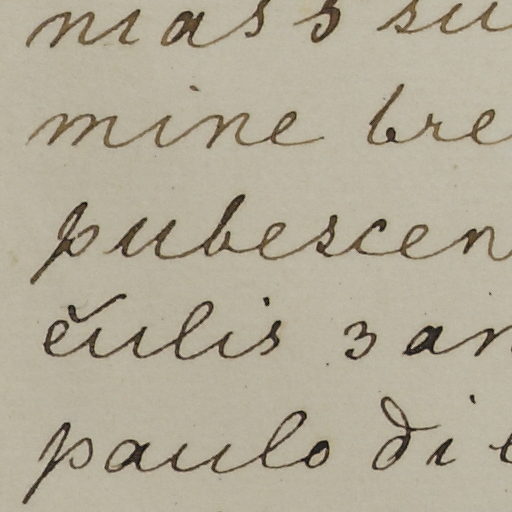 mas 3 su
mine bre
pubescen
c̆ulis 3 an
paulo di